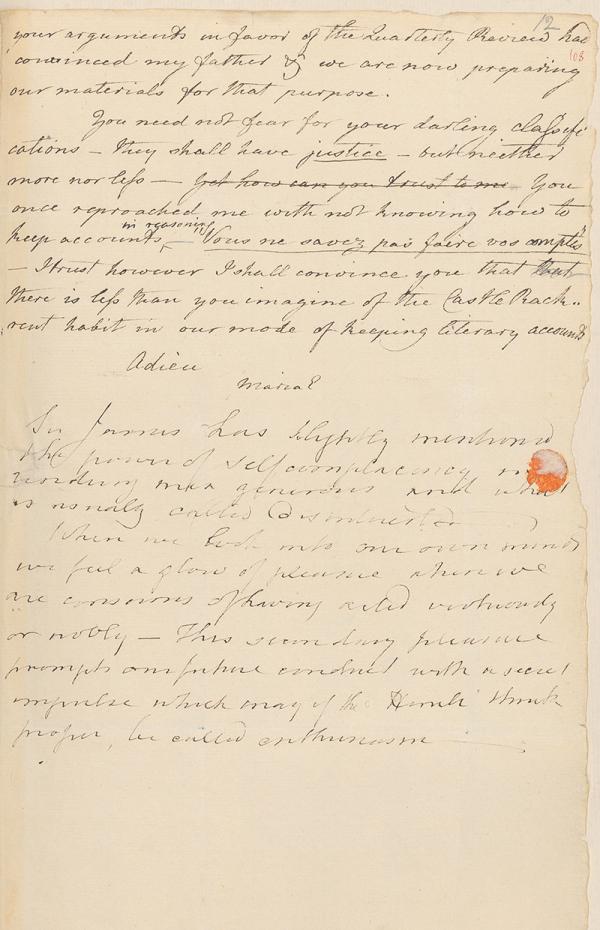 12
108
your arguments in favor of the Quarterly Review had
convinced my father & we are now preparing
our materials for that purpose.
You need not fear for your darling classifi
cations – they shall have justice – but neither
more nor less – yet how can you trust to me You
once reproached me with not knowing how to
in reasoning
keep accounts – Vous ne savez pas faire vos comptes
– I trust however I shall convince you that that
there is less than you imagine of the Castle Rack..
rent habit in our mode of keeping literary accounts
Adieu
Maria E
Sir James has slightly mentioned
the power of self complacency in
rendering men generous and what
is usually called Disinterested
When we look into our own minds
we feel a glow of pleasure when we
are conscious of having acted virtuously
or nobly – This secondary pleasure
prompts our future conduct with a secret
impulse which may if the think
proper, be called enthusiasm